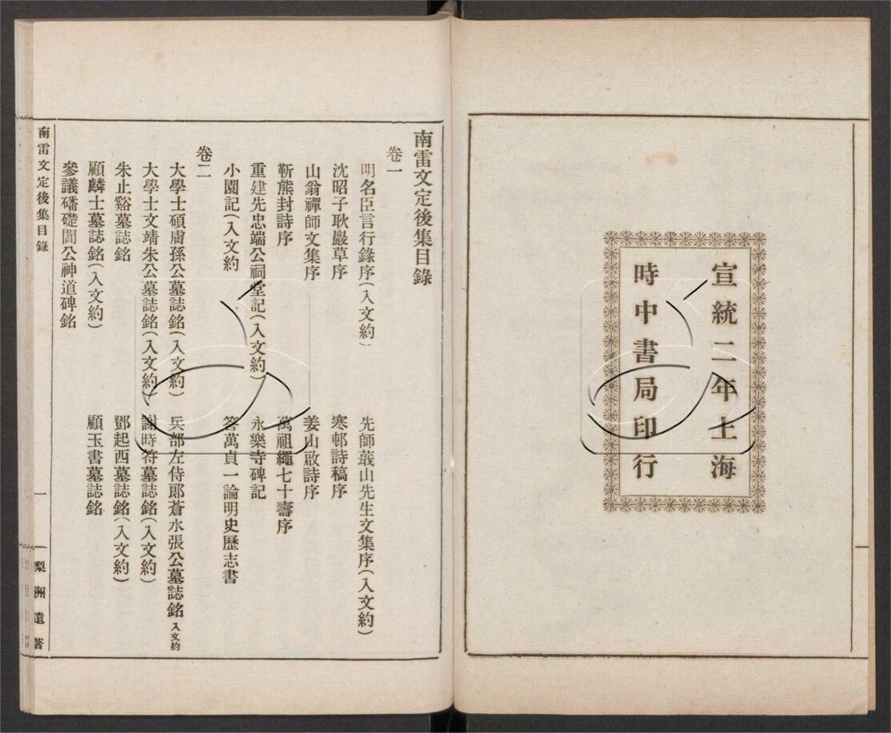 宣統二年上海
時中書局印行
南雷文定後集目錄
卷一
明名臣言行錄序(入文約) 先師蕺山先生文集序(入文約)
沈昭子耿巖草序 寒邨詩稿序
山翁禪師文集序 姜山啟詩序
靳熊封詩序 萬祖繩七十壽序
重建先忠端公祠堂記(入文約) 永樂寺碑記
小園記(入文約 答萬貞一論明史歷志書
卷二
大學士碩膚孫公墓誌銘(入文約) 兵部左侍郎蒼水張公墓誌銘入文約
大學士文靖朱公墓誌銘(入文約) 謝時符墓誌銘(入文約)
朱止谿墓誌銘 鄧起西墓誌銘(入文約)
顧麟士墓誌銘(入文約) 顧玉書墓誌銘
參議磻礎閻公神道碑銘
南雷文定後集目錄
一
梨洲遺著